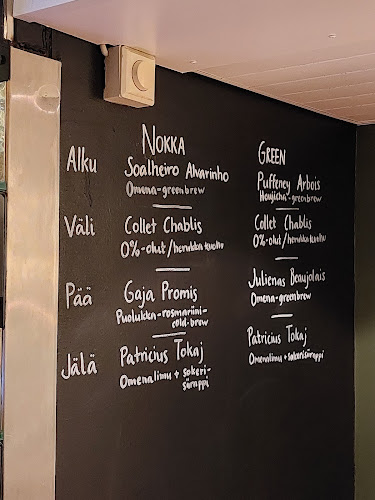 NOKKA
GREEN
Alku
Soalheiro Alvarinho
Omena-greenbrew
Puffeney Arbois
Houjicha-greenbrew
Väli
Collet Chablis
0%-olut/herukka
Collet Chablis
0%-olut/herukka
Pää
Gaja Promis
Puolukka-rosmariini-
cold-brew
Julienas Beaujolais
Omena-greenbrew
Jälä
Patricius Tokaj
Omenalimu + sokeri-
siirappi
Patricius Tokaj
Omenalimu + sokerisiirappi